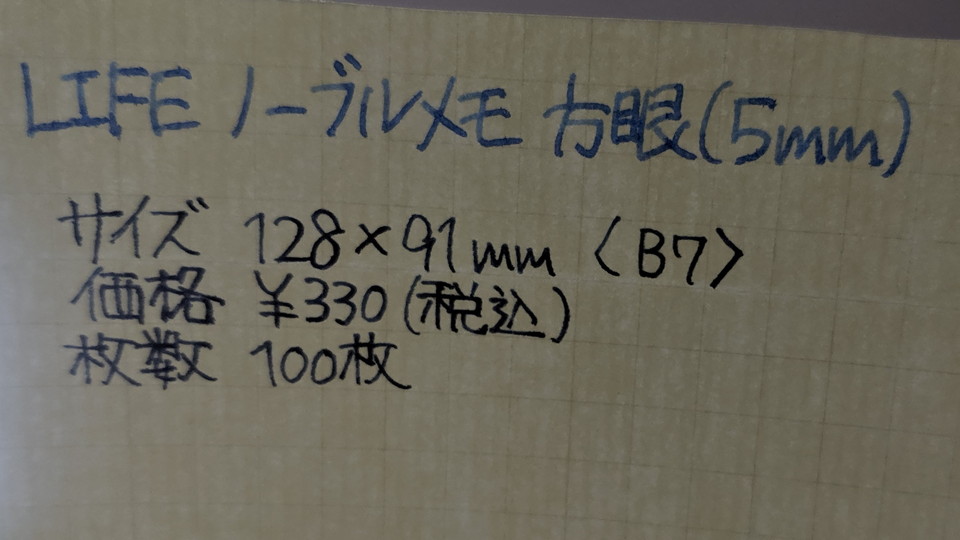 LIFE ノーブルメモ 方眼(5mm)
サイズ 128×91mm 〈B7〉
価格 ¥330(税込)
枚数 100枚